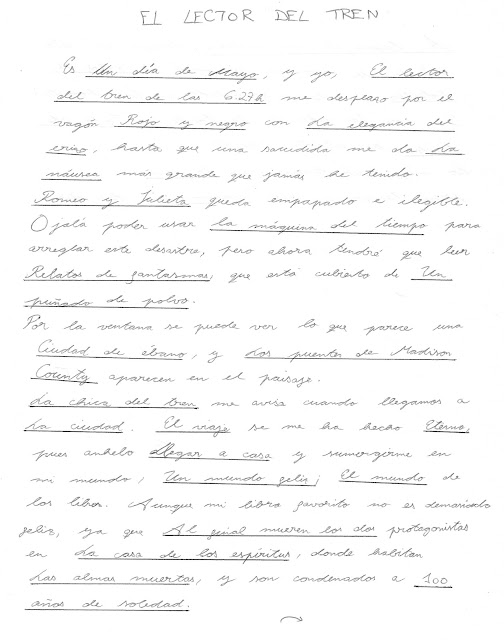 EL LECTOR DEL TREN
Es Un día de Mayo, y yo, El lector
del tren de las 6.27h me desplazo por el
vagón Rojo y negro con La elegancia del
erizo, hasta que una sacudida me da La
náusea más grande que jamás he tenido.
Romeo y Julieta queda empapado e ilegible.
Ojalá poder usar la máquina del tiempo para
arreglar este desastre, pero ahora tendré que leer
Relatos de fantasmas, que está cubierto de Un
puñado de polvo.
Por la ventana se puede ver lo que parece una
Ciudad de ébano, y Los puentes de Madison
County aparecen en el paisaje.
La chica del tren me avisa cuando llegamos a
La ciudad. El viaje se me ha hecho Eterno,
pues anhelo Llegar a casa y sumergirme en
mi mundo, Un mundo feliz, El mundo de
los libros. Aunque mi libro favorito no es demasiado
feliz, ya que Al final mueren los dos protagonistas
en La casa de los espíritus, donde habitan
Las almas muertas, y son condenados a 100
años de soledad.